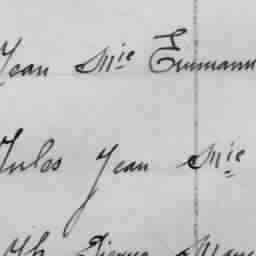 Jean Mie Emmanu
Jules Jean Mie
Pierre Marie